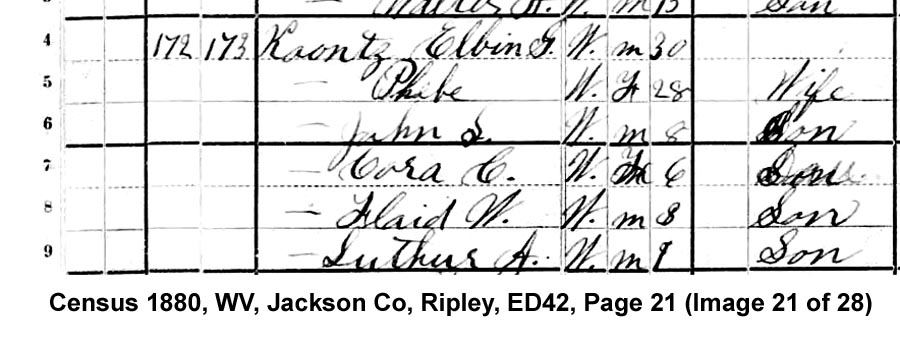 Walter H. W. m 13 Son
4 172 173 Koontz Elbin G. W. m 30
5 — Phebe W. F 28 Wife
6 — John S. W. m 8 Son
7 — Cora C. W. F 6
8 — Flaid W. W. m 3 Son
9 — Luthur A. W. m 1 Son
Census 1880, WV, Jackson Co, Ripley, ED42, Page 21 (Image 21 of 28)